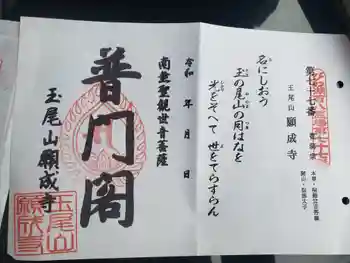 第七十七番
玉尾山 願成寺
名にしおう
玉の尾山の月はなを
光をそへて 世をてらすらん
令和 年 月 日
南無聖観世音菩薩
普門閣
玉尾山願成寺
玉尾山
願成寺